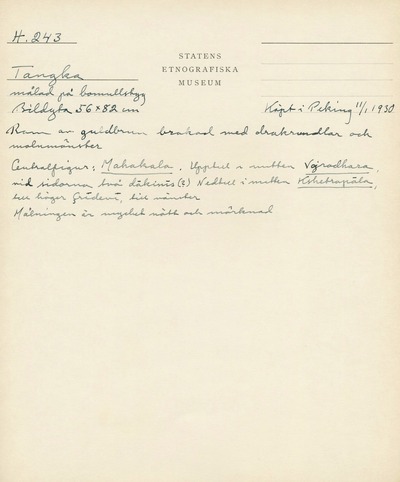 H. 243
STATENS
ETNOGRAFISKA
MUSEUM
Tangka
målad på bomullstyg
Bildyta 56 × 82 cm
Köpt i Peking 11/1 1930
Ram av guldbrun brokad med drakrundlar och
molnmönster
Centralfigur: Mahakala. Upptill i mitten Vajradhara,
vid sidorna två dākinīs (?) Nedtill i mitten Kshetrapāla,
till höger Śrīdevī, till vänster
Målningen är mycket nött och mörknad